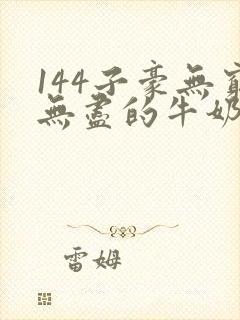 144子豪無窮
無盡的牛奶
雷姆